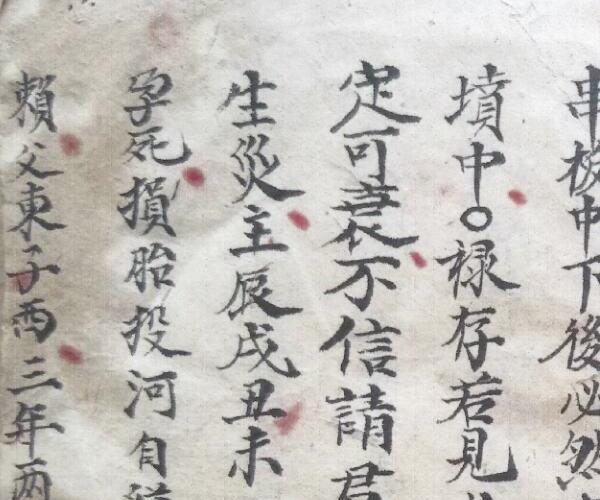 中下後必然
墳中○祿存若見
定可衰不信請君
生災主辰戌丑未
孕死損胎投河自
賴父東子西三年两